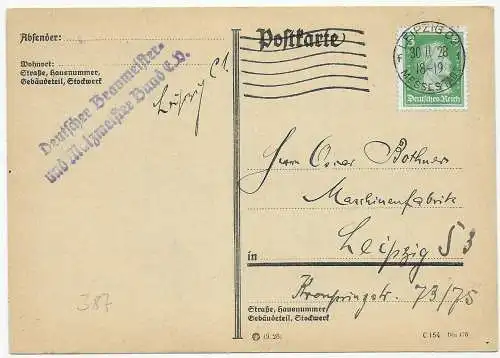 Absender:
Wohnort:
Straße, Hausnummer,
Gebäudeteil, Stockwerk
Deutscher Braumeister-
und Malzmeister Bund E.V.
Postkarte
LEIPZIG
30 11 28
18-19
Deutsches Reich
Herrn Oscar Bothner
Maschinenfabrik
in Leipzig S 3
Kronprinzstr. 73/75
Straße, Hausnummer,
Gebäudeteil, Stockwerk
387
C 154 Din 476